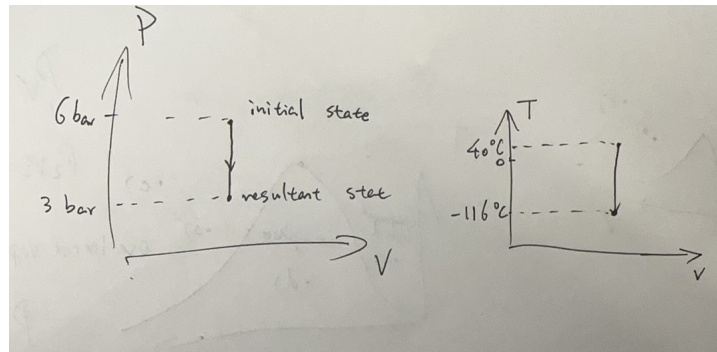 P
6 bar
initial state
3 bar
resultant stat
V
T
40°C
0
-116°C
v